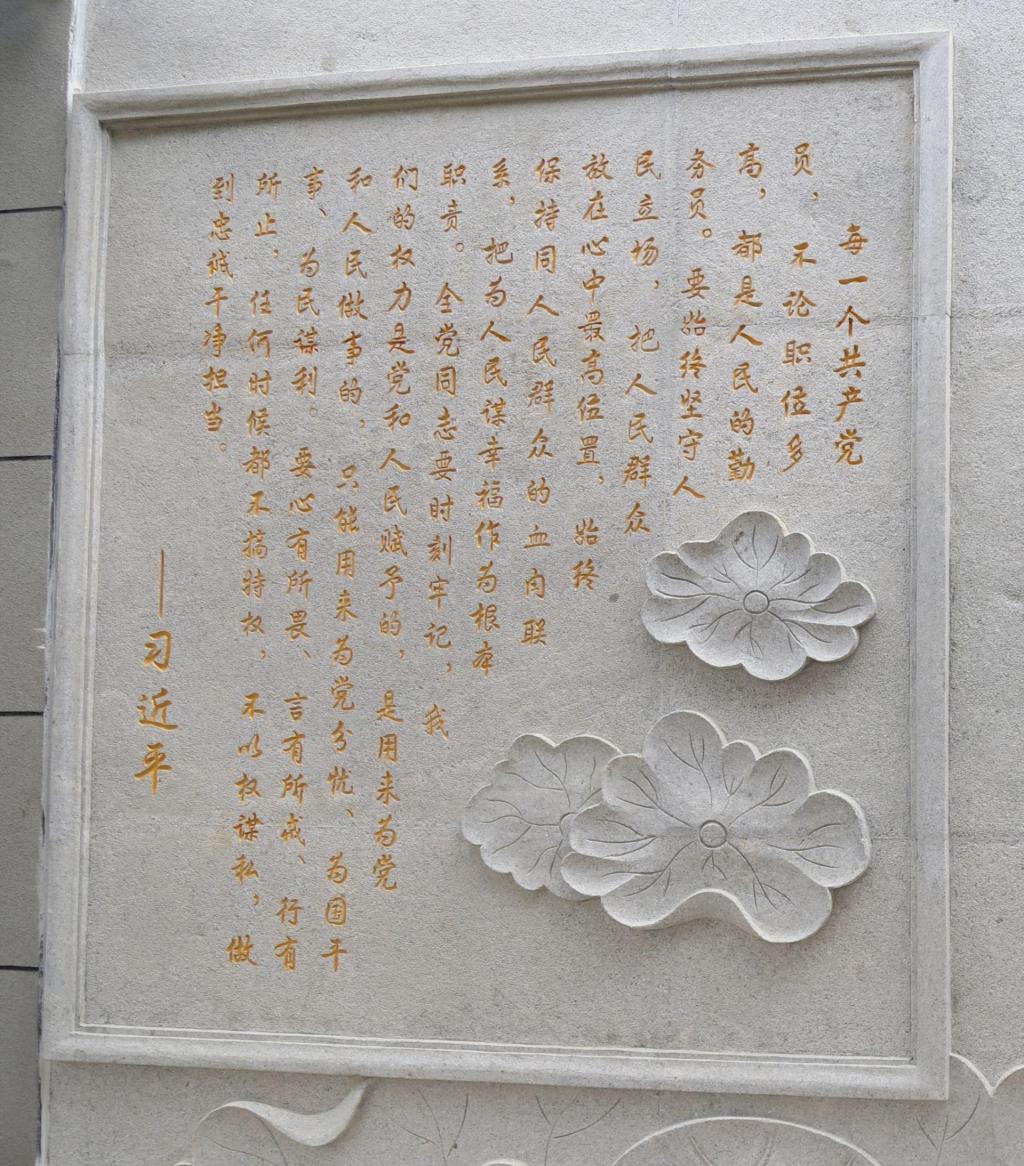 每一个共产党
员，不论职位多
高，都是人民的勤
务员。要始终坚守人
民立场，把人民群众
放在心中最高位置，始终
保持同人民群众的血肉联
系，把为人民谋幸福作为根本
职责。全党同志要时刻牢记，我
们的权力是党和人民赋予的，是用来为党
和人民做事的，只能用来为党分忧、为国干
事、为民谋利。要心有所畏、言有所戒、行有
所止，任何时候都不搞特权，不以权谋私，做
到忠诚干净担当。
——习近平